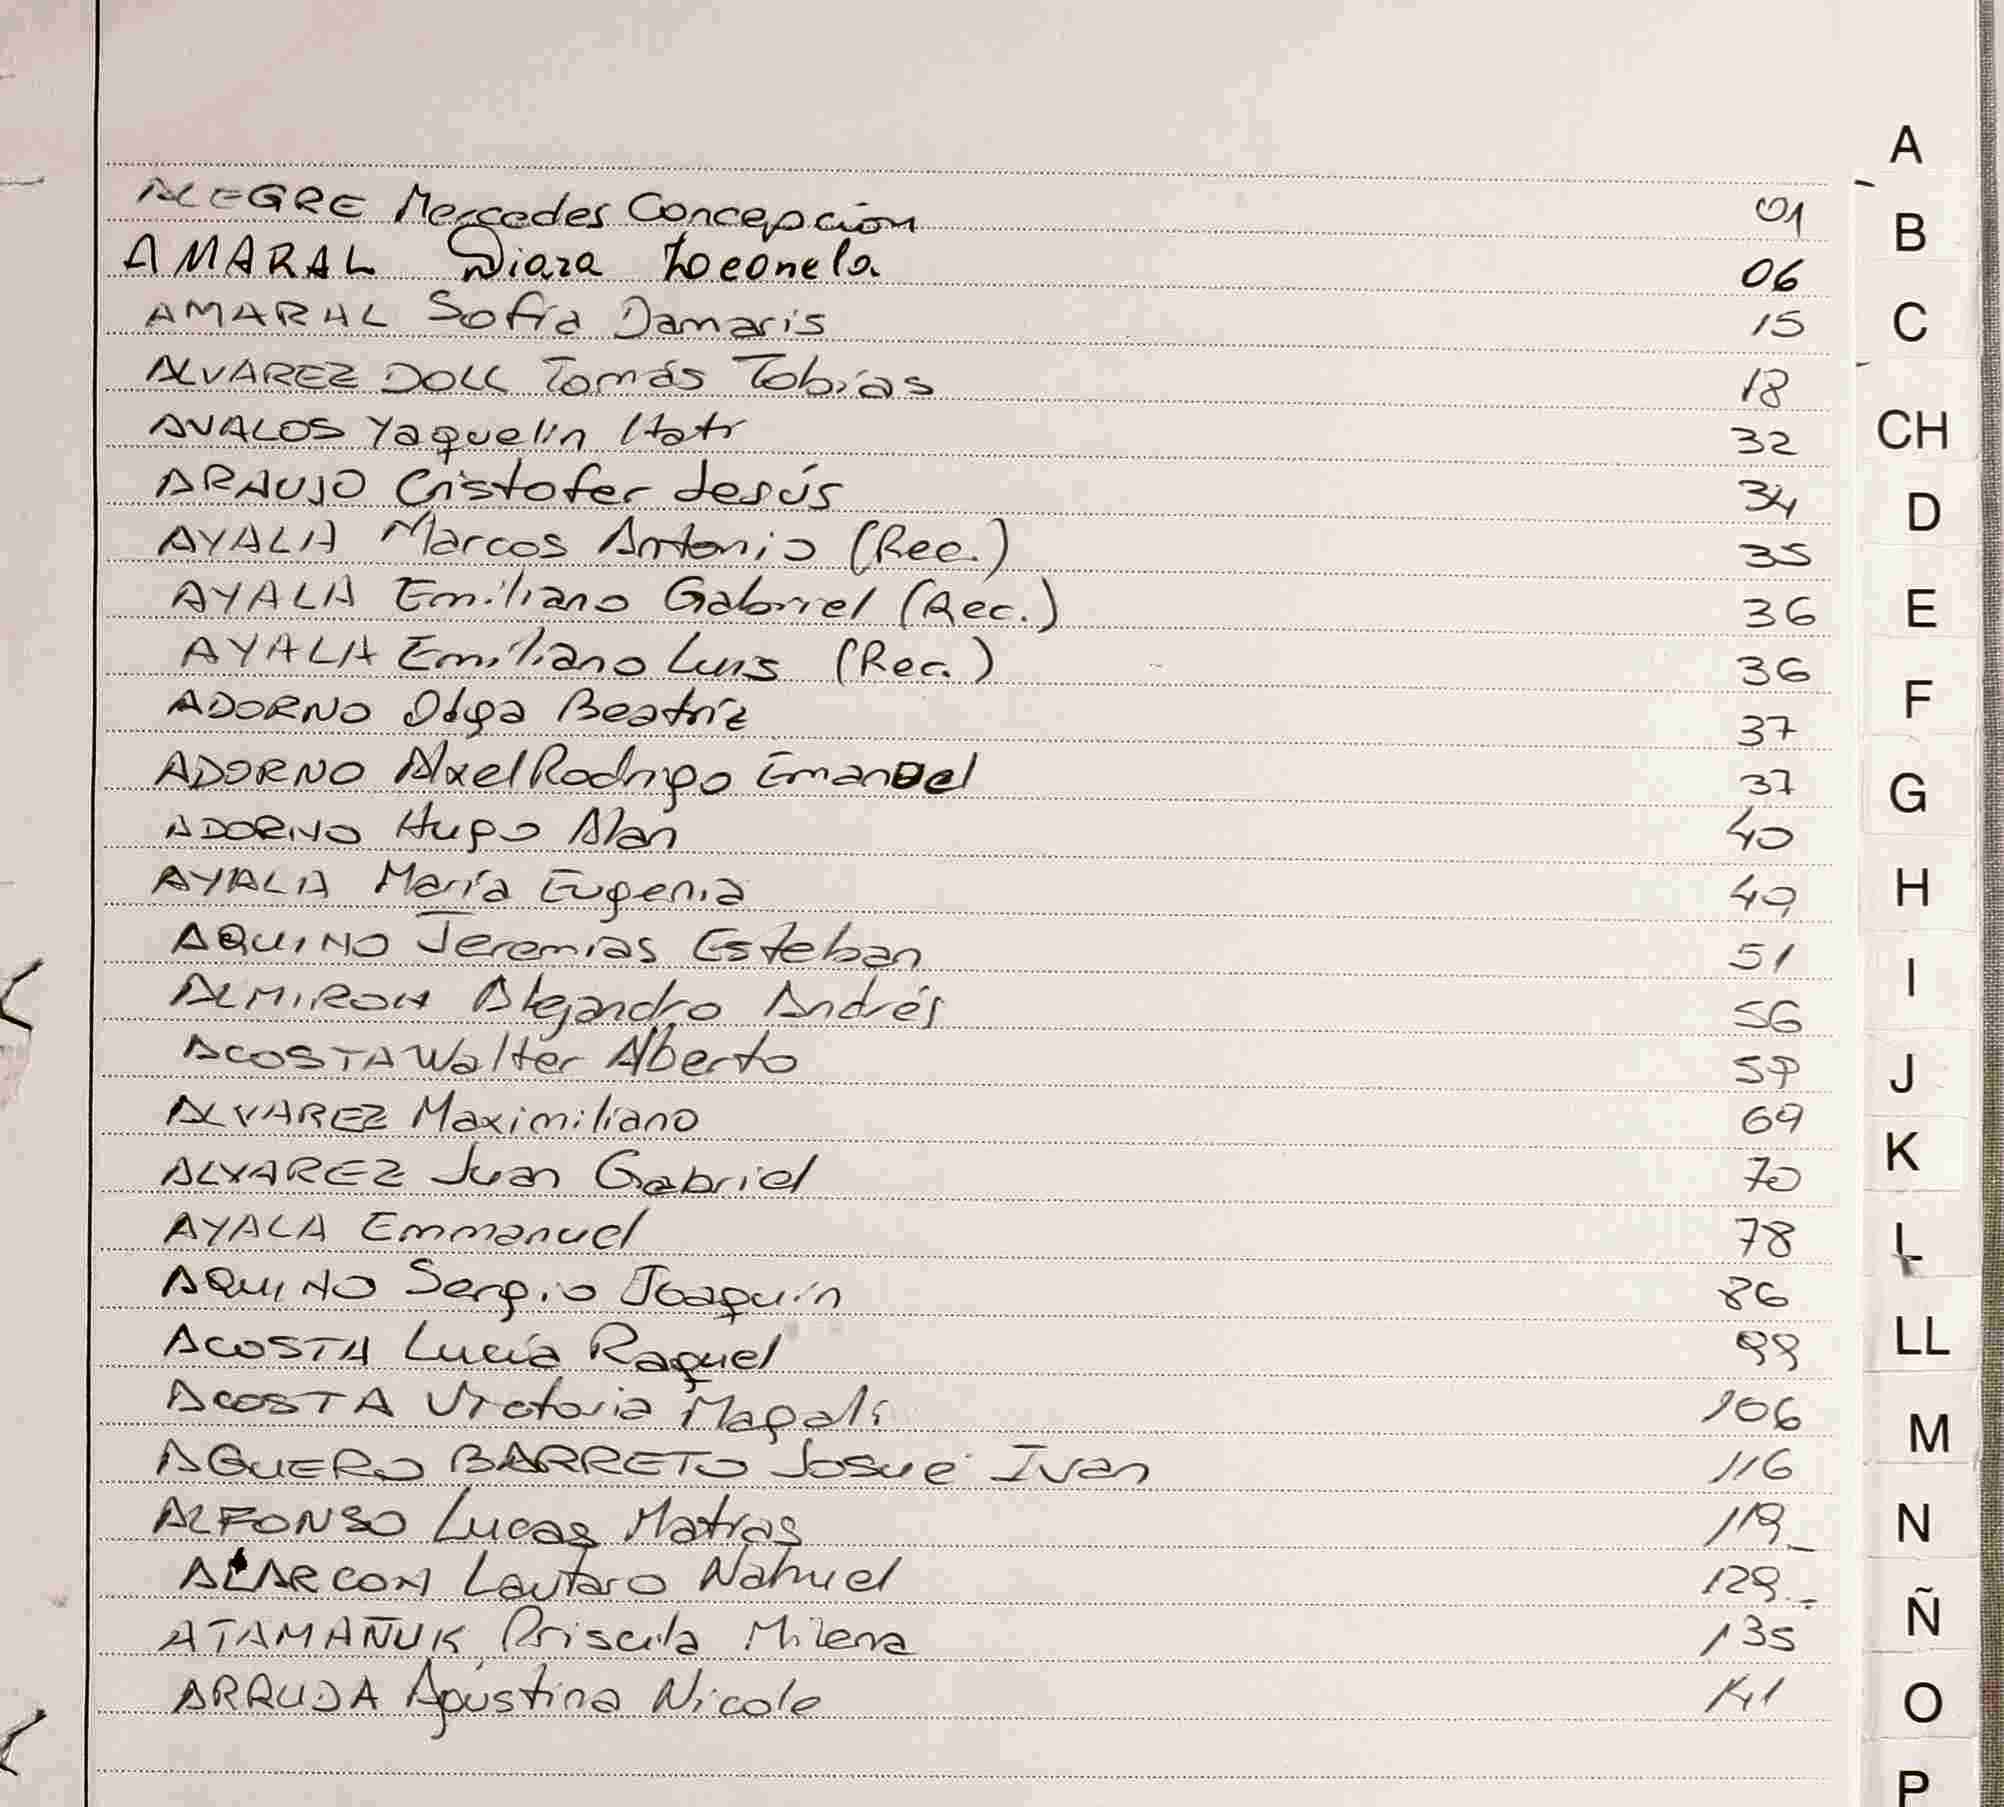 ALEGRE Mercedes Concepción 01
AMARAL Diara 06
AMARAL Sofía Damaris 15
ALVAREZ DOLL Tomás Tobías 18
AVALOS Yaquelin Itatí 32
ARAUJO Cristofer Jesús 34
AYALA Marcos Antonio (Rec.) 35
AYALA Emiliano Gabriel (Rec.) 36
AYALA Emiliano Luis (Rec.) 36
ADORNO Olga Beatríz 37
ADORNO Alxel Rodrigo Emanuel 37
ADORNO Hugo Alan 40
AYALA María Eugenia 49
AQUINO Jeremías Esteban 51
ALMIRON Alejandro Andrés 56
ACOSTA Walter Alberto 59
ALVAREZ Maximiliano 69
ALVAREZ Juan Gabriel 70
AYALA Emmanuel 78
AQUINO Sergio Joaquín 86
ACOSTA Lucía Raquel 99
ACOSTA Victoria Magalí 106
AGUERO BARRETO Josué Ivan 116
ALFONSO Lucas Matías 119
ALARCON Lautaro Nahuel 129
ATAMAÑUK Priscila Milena 135
ARRUDA Agústina Nicole 141
A
B
C
CH
D
E
F
G
H
I
J
K
L
LL
M
N
Ñ
O
P